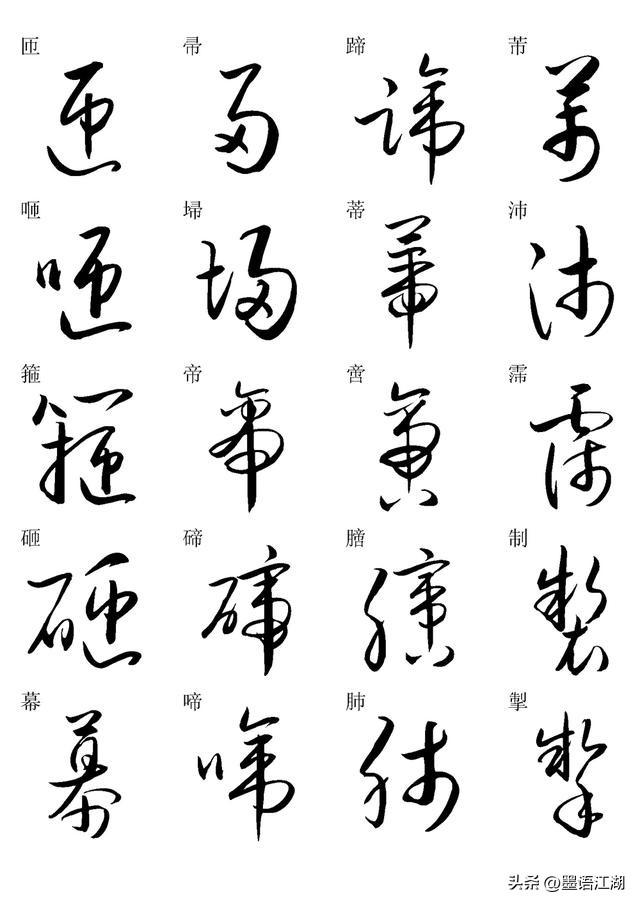 匝 帚 蹄 芾
咂 埽 蒂 沛
箍 帝 啻 霈
砸 碲 膪 制
幕 啼 肺 掣
头条 @墨语江湖